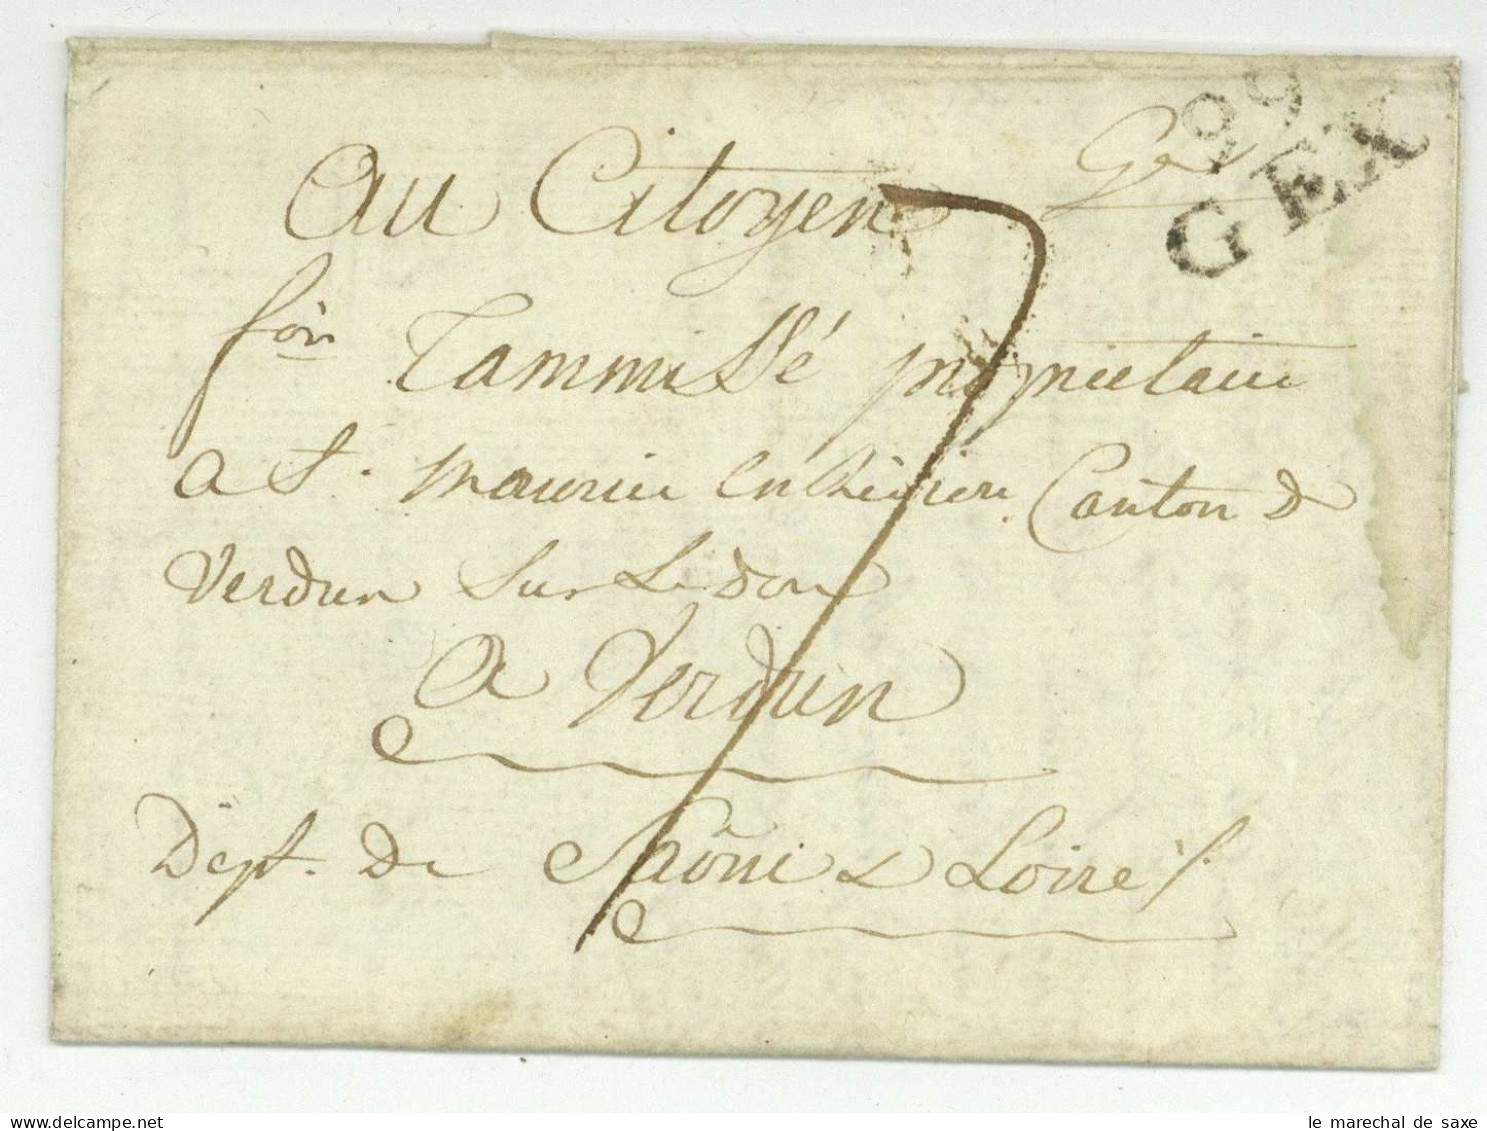 99
GEX
Gex
Au Citoyen
fois Tammissé proprietaire
a St. Maurice en Riviere Canton de
Verdun Sur Le doux
a Verdun
Dept. de Saône & Loire
7
le marechal de saxe